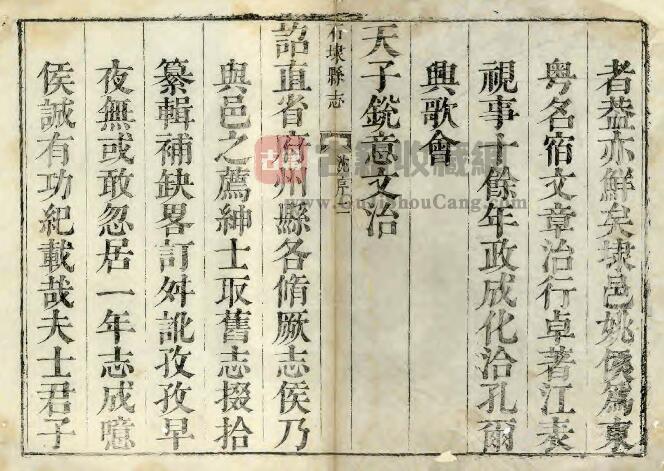 者葢亦鮮矣埭邑姚侯爲東
粤名宿文章治行卓著江表
視事十餘年政成化洽孔爾
興歌會
天子銳意文治
石埭縣志
沈序二
詔直省府州縣各脩厥志侯乃
與邑之薦紳士取舊志掇拾
纂輯補缺畧訂舛訛孜孜早
夜無或敢忽居一年志成噫
侯誠有功紀載哉夫士君子
古籍收藏網
www.GujiShouCang.com